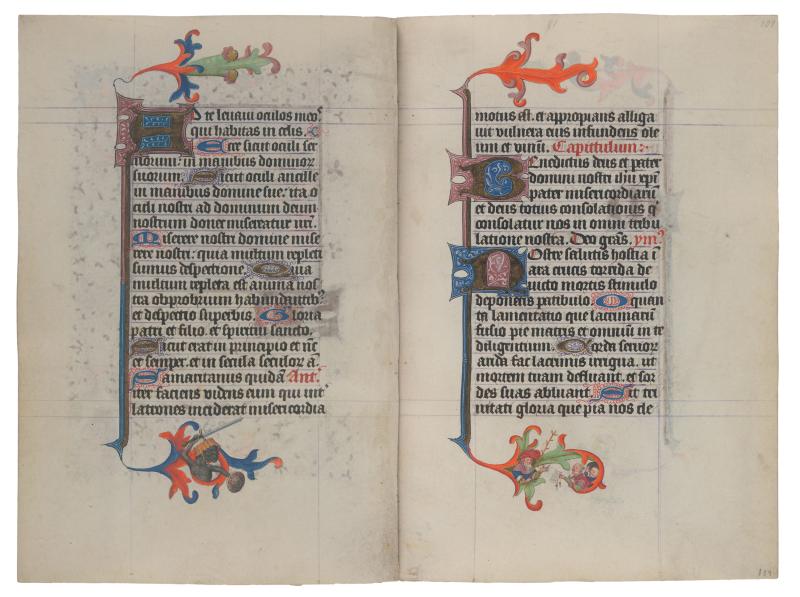 D te leuaui oculos meoˢ
qui habitas in celis.
Ecce sicut oculi ser
uorum: in manibus dominor
suorum. Sicut oculi ancille
in manibus domine sue: ita o
culi nostri ad dominum deum
nostrum donec misereatur nri.
Miserere nostri domine mise
rere nostri: quia multum repleti
sumus despectione. Quia
multum repleta est anima nos
tra obprobrium habundantibꝰ
et despectio superbis. Gloria
patri et filio. et spiritui sancto.
Sicut erat in principio et nūc
et semper. et in secula seculorum a.
Samaritanus quidā Ant.
iter faciens videns eum qui in
latrones inciderat misericordia
101
81
motus est. et appropians alliga
uit vulnera eius infundens ole
um et vinum. Capitulum:
Benedictus deus et pater
domini nostri ihu xpi
pater misericordiarū
et deus totius consolationis q
consolatur nos in omni tribu
latione nostra. Deo gras. ymꝰ
Nostre salutis hostia ī
ara crucis torrida de
uicto mortis stimulo
deponeris patibulo. O quan
ta lamentatio que lacrimarū
fusio pie matris et omniū in te
diligentium. Corda seruor
arida fac lacrimis irrigua. ut
mortem tuam defleant. et sor
des suas abluant. Sit tri
nitati gloria que pia nos de